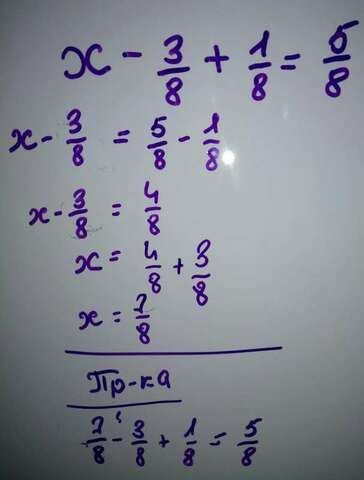 x - 3/8 + 1/8 = 5/8
x - 3/8 = 5/8 - 1/8
x - 3/8 = 4/8
x = 4/8 + 3/8
x = 7/8
Пр-ка
7/8 - 3/8 + 1/8 = 5/8